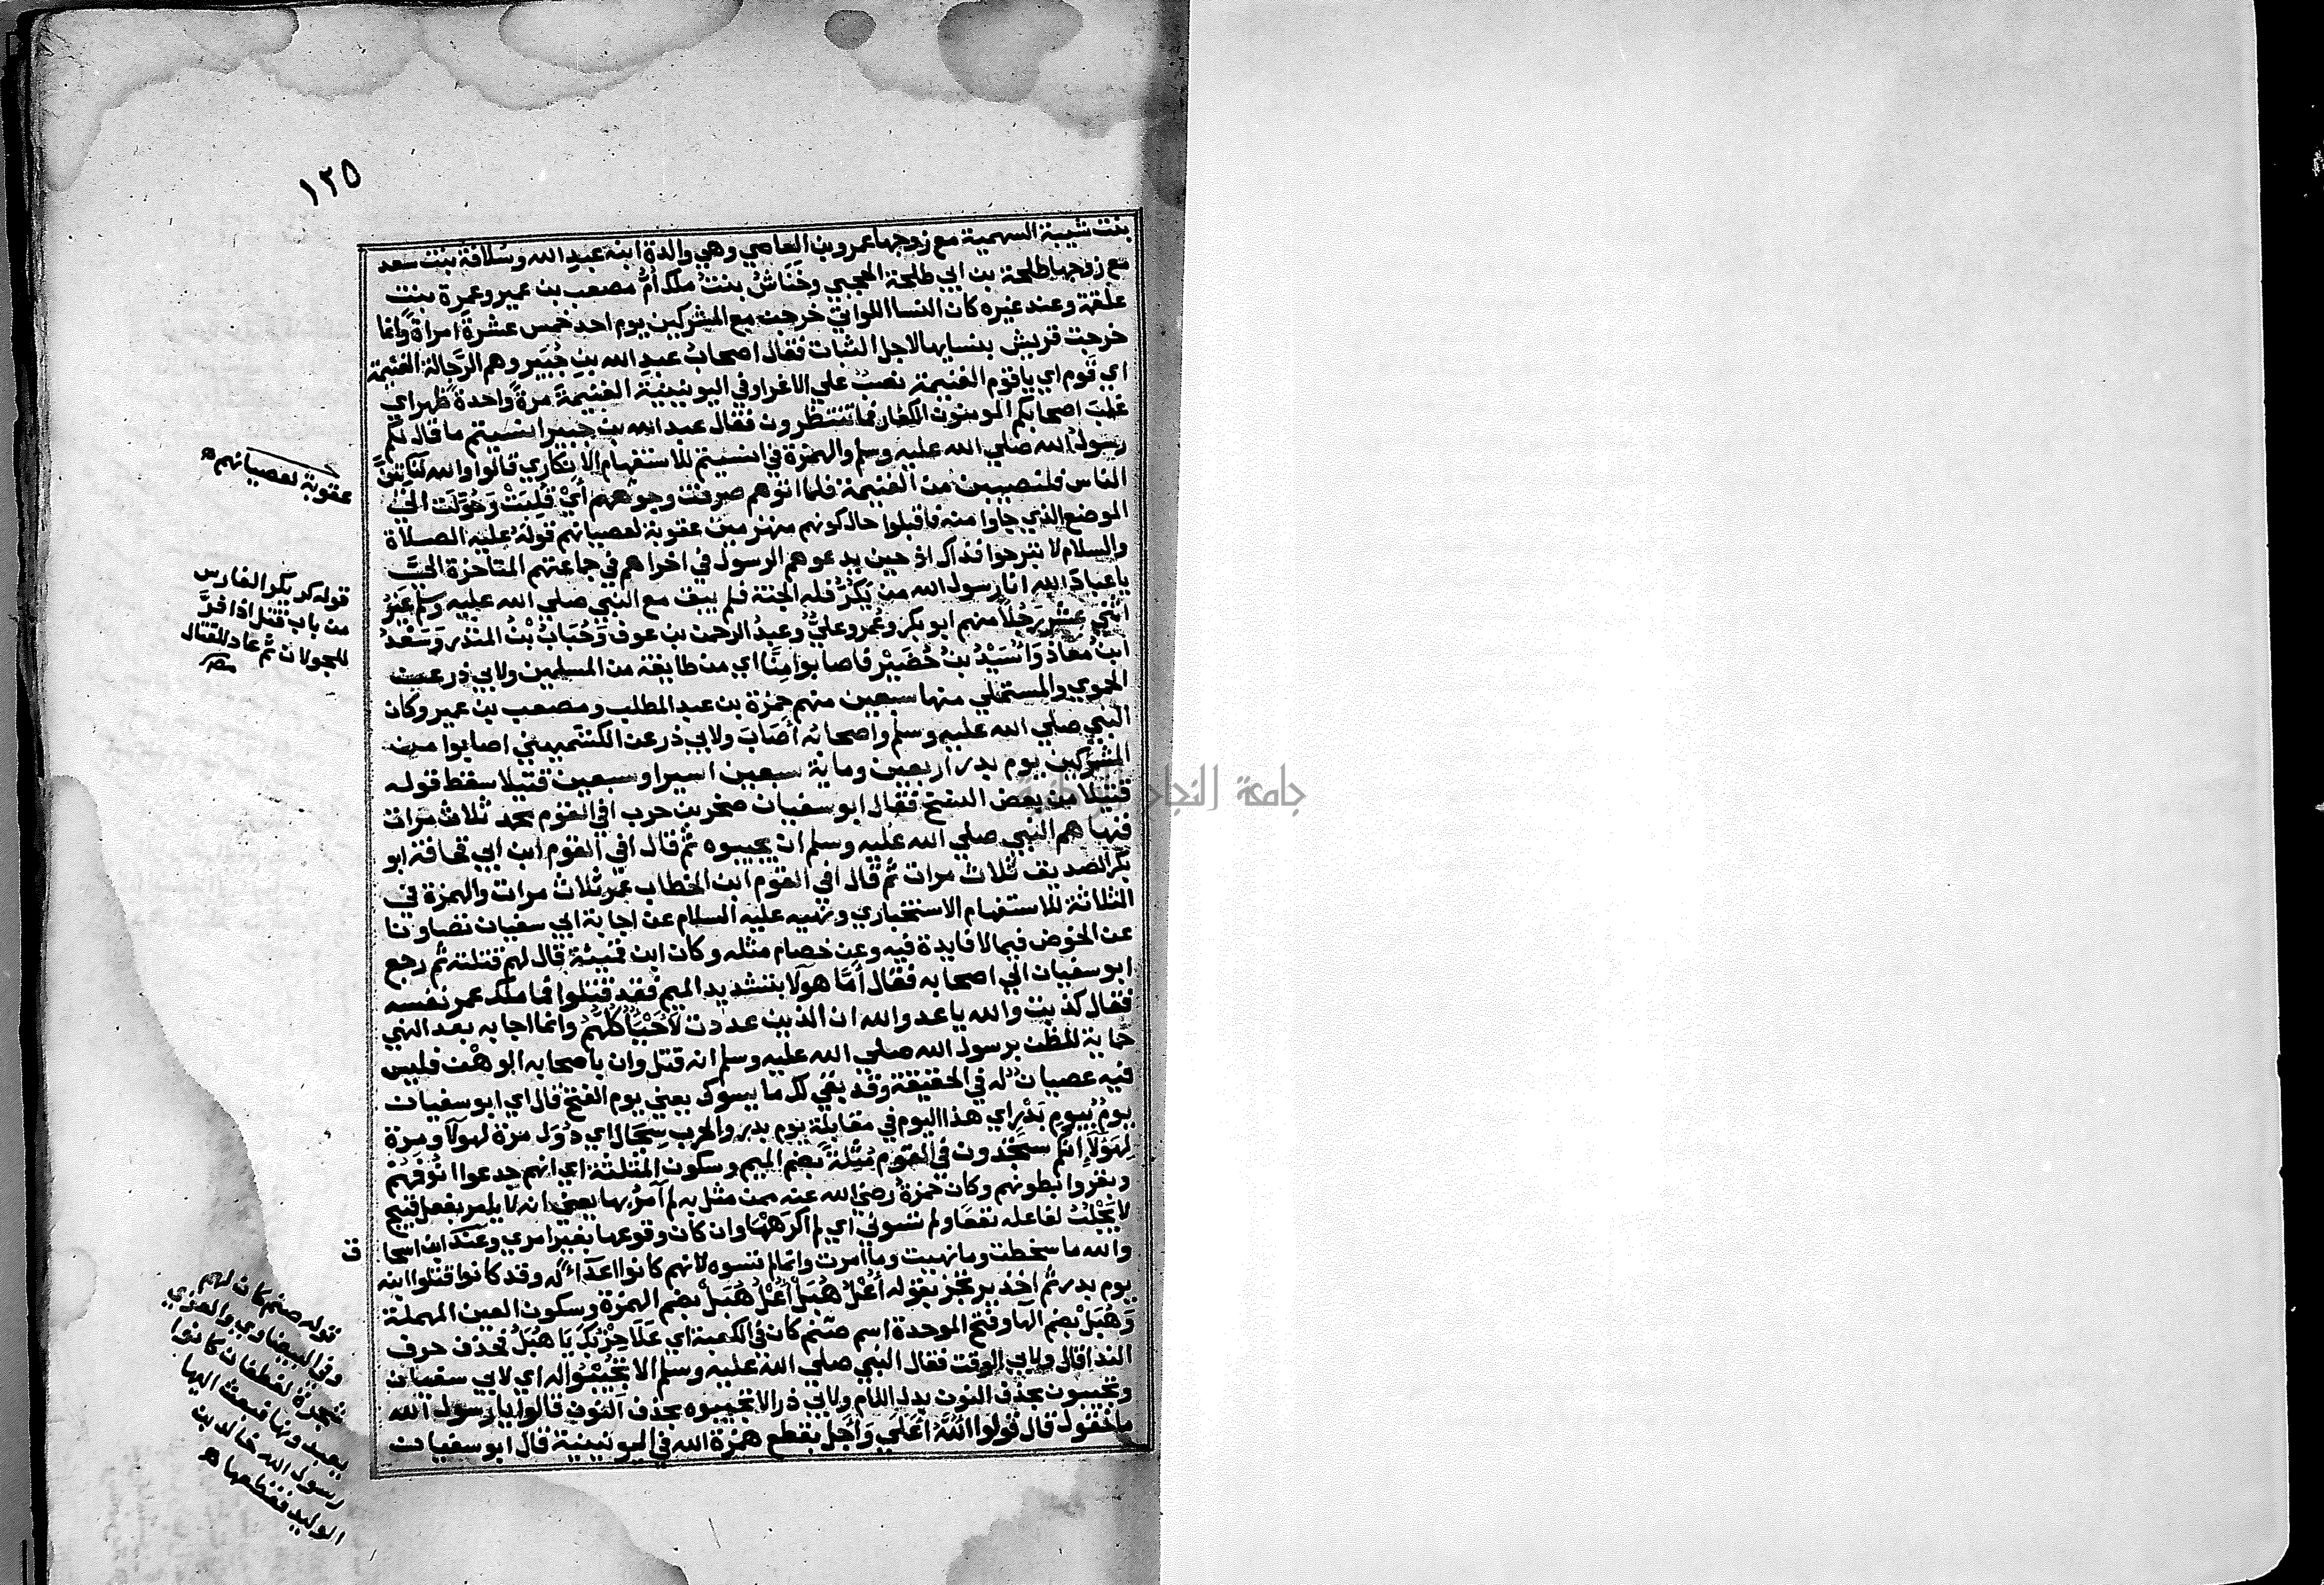 ١٢٥
بنت شيبة السهمية مع زوجها عمرو بن العاصي وهي والدة ابنه عبد الله وسلافة بنت سعد
مع زوجها طلحة بن ابي طلحة الحجبي وخناش بنت ملك أم مصعب بن عمير وعمرة بنت
علقمة وعند غيره كان النسا اللواتي خرجن مع المشركين يوم احد خمس عشرة امراة وانما
خرجت قريش بنسايها لاجل الثبات فقال اصحاب عبد الله بن جبير وهم الرجالة الغنيمة
اي قوم اي يا قوم الغنيمة نصب علي الاغرا وفي اليونينية الغنيمة مرة واحدة ظهر اي
غلب اصحابكم المومنون الكفار فما تنتظرون فقال عبد الله بن جبير انسيتم ما قال لكم
رسول الله صلي الله عليه وسلم والهمزة في انسيتم للاستفهام الانكاري قالوا والله لناتين
الناس فلنصيبن من الغنيمة فلما اتوهم صرفت وجوههم أي قلبت وحولت الي
الموضع الذي جاوا منه فاقبلوا حال كونهم منهزمين عقوبة لعصيانهم قوله عليه الصلاة
والسلام لا تبرحوا فذاك اذ حين يدعوهم الرسول في اخراهم في جماعتهم المتاخرة الي
يا عباد الله انا رسول الله من يكر فله الجنة فلم يبق مع النبي صلي الله عليه وسلم غير
اثني عشر رجلا منهم ابو بكر وعمر وعلي وعبد الرحمن بن عوف وحباب بن المنذر وسعد
ابن معاذ وأسيد بن حضير فاصابوا منا اي من طايفة من المسلمين ولابي ذر عن
الحموي والمستملي منها سبعين منهم حمزة بن عبد المطلب ومصعب بن عمير وكان
النبي صلي الله عليه وسلم واصحابه أصاب ولابي ذر عن الكشميهني اصابوا من
المشركين يوم بدر اربعين وماية سبعين اسيرا وسبعين قتيلا سقط قوله
قتيلا من بعض النسخ فقال ابو سفيان صخر بن حرب افي القوم محمد ثلاث مرات
فنهاهم النبي صلي الله عليه وسلم ان يجيبوه ثم قال افي القوم ابن ابي قحافة ابو
بكر الصديق ثلاث مرات ثم قال افي القوم ابن الخطاب عمر ثلاث مرات والهمزة في
الثلاثة للاستفهام الاستخباري ونهيه عليه السلام عن اجابة ابي سفيان تصاونا
عن الخوض فيما لا فايدة فيه وعن خصام مثله وكان ابن قميئة قال لهم قتلته ثم رجع
ابو سفيان الي اصحابه فقال أما هولا بتشديد الميم فقد قتلوا فما ملك عمر نفسه
فقال كذبت والله يا عدو الله ان الذين عددت لأحياء كلهم وانما اجابه بعد النهي
حماية للظن برسول الله صلي الله عليه وسلم انه قتل وان باصحابه الوهن فليس
فيه عصيان له في الحقيقة وقد بقي لك ما يسوك يعني يوم الفتح قال اي ابو سفيان
يوم بيوم بدر اي هذا اليوم في مقابلة يوم بدر والحرب سجال اي دول مرة لهولا ومرة
لهولاء انكم ستجدون في القوم مثلة بضم الميم وسكون المثلثة اي انهم جدعوا انوفهم
وبقروا بطونهم وكان حمزة رضي الله عنه ممن مثل به لم آمر بها يعني انه لا يامر بفعل قبيح
لا يجلب لفاعله نفعا ولم تسوني اي لم اكرهها وان كان وقوعها بغير امري وعند ابن اسحا ق
والله ما سخطت وما نهيت وما امرت وانما لم تسوه لانهم كانوا اعداء له وقد كانوا قتلوا ابنه
يوم بدر ثم اخذ يرتجز بقوله أعل هبل أعل هبل بضم الهمزة وسكون العين المهملة
وهبل بضم الها وفتح الموحدة اسم صنم كان في الكعبة اي علا حزبك يا هبل فحذف حرف
الندا قال ولابي الوقت فقال النبي صلي الله عليه وسلم الا تجيبوا له اي لابي سفيان
وتجيبون بحذف النون بدل اللام ولابي ذر الا تجيبوه بحذف النون قالوا يا رسول الله
ما نقول قال قولوا الله أعلي وأجل بقطع همزة الله في اليونينية قال ابو سفيان
عقوبة لعصيانهم
قوله كر يكر الفارس
من باب قتل اذا فر
للجولان ثم عاد للقتال
مصر
قوله صنم كان لهم
وفي البيضاوي والعزي
شجرة لغطفان كانوا
يعبدونها فبعث اليها
رسول الله خالد بن
الوليد فقطعها
جامعة النجاح الوطنية